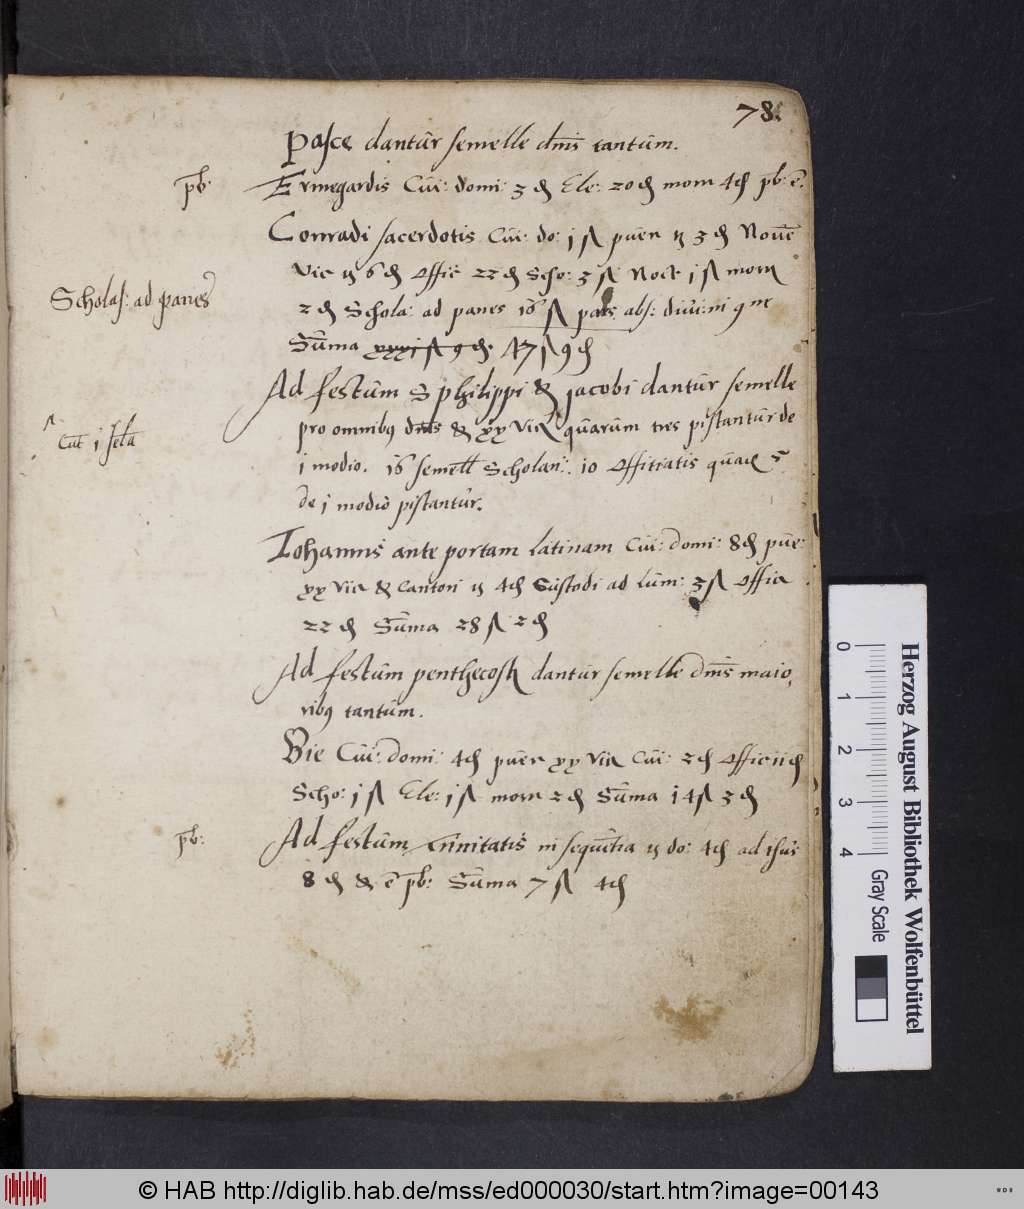 78.
Pasce dantur semelle dnis tantum.
pb:
Ermegardis Cui: domi: 3 ₰ Ele: 20 ₰ morn 4 ₰ pb: ē.
Conradi sacerdotis Cui: do: j ß puer ij 3 ₰ Noūe
vic ij 6 ₰ offic 22 ₰ Scho: 3 ß Nock j ß morn
Scholas: ad panes
2 ₰ Schola: ad panes 16 ß abs: divi: in
Suma xxxj ß 9 ₰. 47 ß 9 ₰
Ad festum S philippi & jacobi dantur semelle
pro omnibus dnis & xx vic quarum tres pistantur de
Cuī j
j modio. 16 semell Scholari: 10 offitiatis quar 5
de j modio pistantur.
Iohannis ante portam latinam Cui: domi: 8 ₰ pue:
xx vic & Cantori ij 4 ₰ Custodi ad lum: 3 ß offic
22 ₰ Suma 28 ß 2 ₰
Ad festum penthecost dantur semelle dnis maio,
ribus tantum.
Vie Cui: domi: 4 ₰ puer xx vic Cui: 2 ₰ offic ii ₰
Scho: j ß Ele: j ß morn 2 ₰ Suma 14 ß 3 ₰
pb:
Ad festum Trinitatis in sequētia ij do: 4 ₰ ad
8 ₰ & ē pb: Suma 7 ß 4 ₰
0 1 2 3 4
Gray Scale
Herzog August Bibliothek Wolfenbüttel
© HAB http://diglib.hab.de/mss/ed000030/start.htm?image=00143